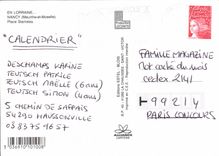 EN LORRAINE...
NANCY (Meurthe-et-Moselle)
Place Stanislas
"CALENDRIER"
DESCHAMPS KARINE
TEUTSCH PATRICE
TEUTSCH MAËLLE (6 ans)
TEUTSCH SIMON (4 ans)
5 CHEMIN DE SAFFAIS
54290 HAUSSONVILLE
03 83 75 96 57
FAMILLE MAGAZINE
cedex 2141
99214
PARIS CONCOURS